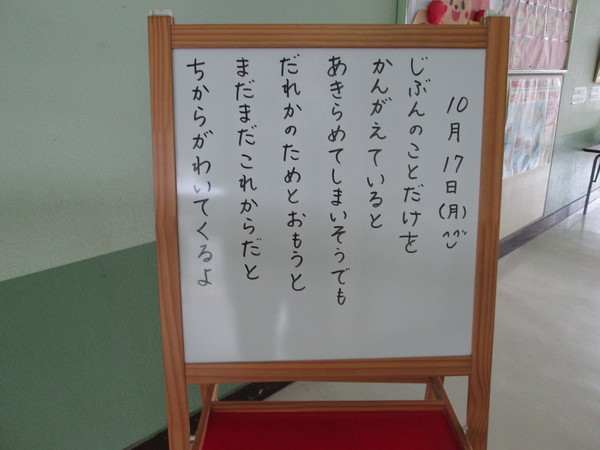 10月17日(月)^^
じぶんのことだけを
かんがえていると
あきらめてしまいそうでも
だれかのためとおもうと
まだまだこれからだと
ちからがわいてくるよ